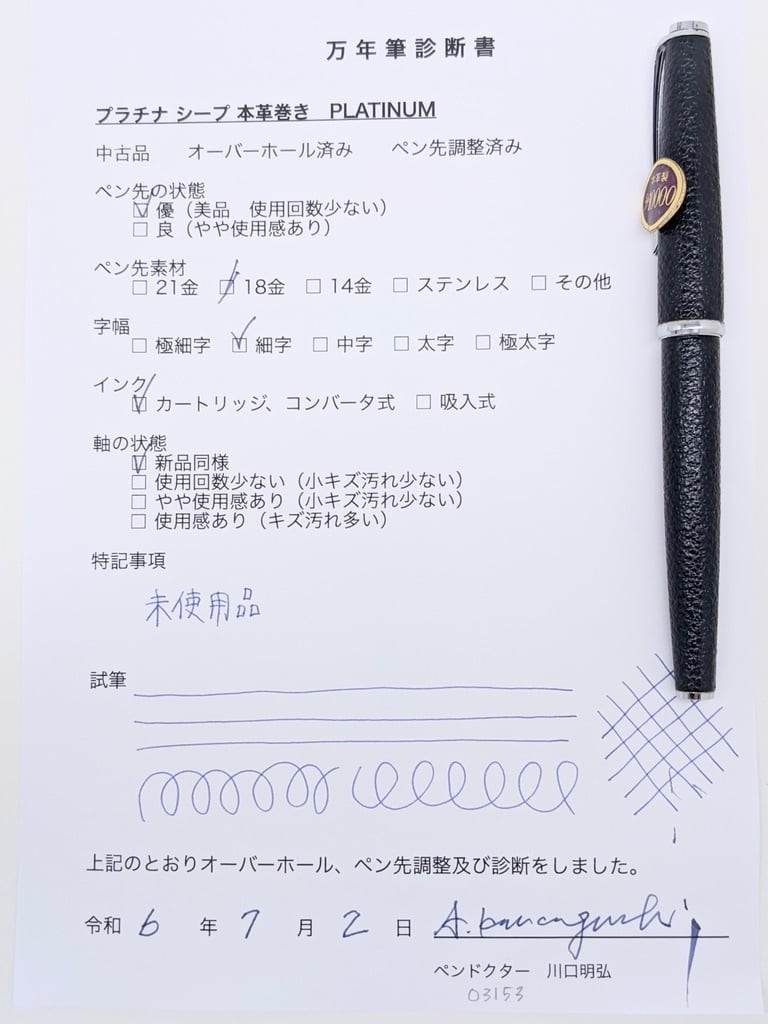 万年筆診断書
プラチナ シープ 本革巻き PLATINUM
中古品 オーバーホール済み ペン先調整済み
ペン先の状態
☑ 優（美品 使用回数少ない）
☐ 良（やや使用感あり）
ペン先素材
☐ 21金 ☑ 18金 ☐ 14金 ☐ ステンレス ☐ その他
字幅
☐ 極細字 ☑ 細字 ☐ 中字 ☐ 太字 ☐ 極太字
インク
☑ カートリッジ、コンバータ式 ☐ 吸入式
軸の状態
☑ 新品同様
☐ 使用回数少ない（小キズ汚れ少ない）
☐ やや使用感あり（小キズ汚れ少ない）
☐ 使用感あり（キズ汚れ多い）
特記事項
未使用品
試筆
上記のとおりオーバーホール、ペン先調整及び診断をしました。
令和 6 年 7 月 2 日
ペンドクター 川口明弘
03153